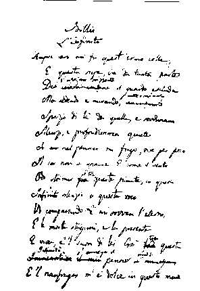 L'Infinito
Sempre caro mi fu quest'ermo colle,
E questa siepe, che da tanta parte
il guardo esclude
Ma sedendo e mirando,
Spazio di là da quella, e sovrumani
Silenzi, e profondissima quiete
Io nel pensier mi fingo, ove per poco
Il cor non si spaura. E come il vento
Odo stormir tra queste piante, io quello
Infinito silenzio a questa voce
Vo comparando: e mi sovvien l'eterno,
E le morte stagioni, e la presente
E viva, e 'l suon di lei. Così questa
il pensier
E 'l naufragar m'è dolce in questo mare